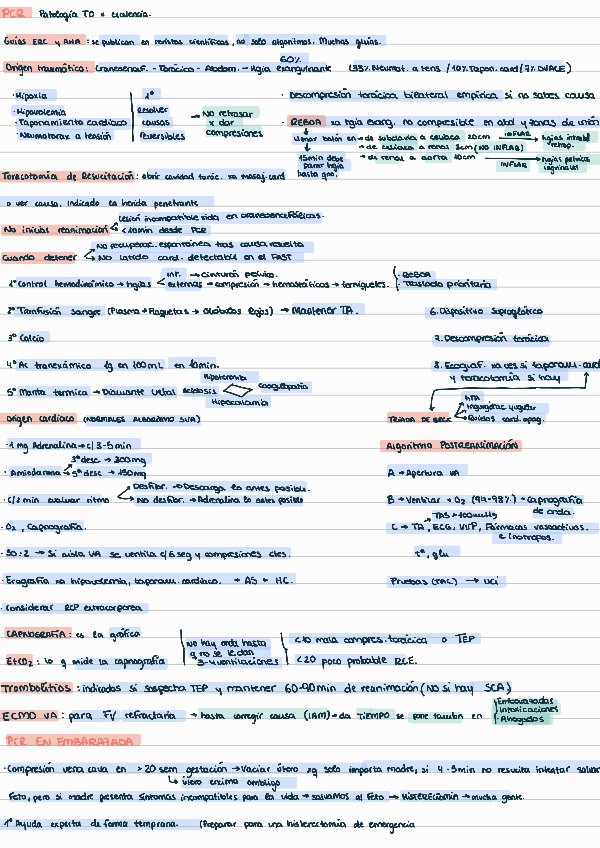 PCR Patología TD x excelencia.
Guías ERC y AHA: se publican en revistas científicas, no solo algoritmos. Muchas guías.
60%
Origen traumático: Craneoencef. - Torácico - Abdom. - Hgia exanguinante (33% Neumot. a tens / 10% Tapon. card / 7% DVACE)
· Hipoxia
· Hipovolemia
· Taponamiento cardíaco
· Neumotorax a tensión
1º
resolver
causas
reversibles
→ No retrasar
x dar
compresiones
· Descompresión torácica bilateral empírica si no sabes causa
· REBOA xa hgia exang. no compresible en abd y zonas de unión
llenar balón en → de subclavia a celíaca 20cm INFLAR → hgias intrabd
retrop.
→ de celíaca a renal 3cm (NO INFLAR)
→ de renal a aorta 10cm INFLAR → hgias pélvicas
inguinales
15min debe
parar hgia
hasta qno.
Toracotomía de Resucitación: abrir cavidad torác. xa masaj. card
o ver causa. Indicado es herida penetrante
No iniciar reanimación
Lesión incompatible vida en
<10min desde PCR
Cuando detener
No recuperac. espontánea tras causa resuelta
No latido card. detectable en el FAST
1º Control hemodinámico → hgias
int. → cinturón pélvico.
externas → compresión → hemostáticos → torniquetes.
· REBOA
· Traslado prioritario
2º Tranfusión sangre (Plasma → Plaquetas → Glóbulos Rojos) → Mantener TA.
3º Calcio
4º Ac tranexámico 1g en 100mL en 10min.
5º Manta termica → Diamante Letal
Hipotermia
Acidosis
Coagulopatía
Hipocalcemia
6. Dispositivo Supraglótico
7. Descompresión torácica
8. Ecograf. xa ves si taponam. card
y toracotomía si hay
TRIADA DE BECK
hTA
Ingurgitac yugular
Ruidos card. apag.
Origen cardíaco (NORMALES ALGORITMO SVA)
· 1 mg Adrenalina → c/ 3-5 min
· Amiodarona
3ª desc → 300mg
5ª desc → 150mg
· c/2 min evaluar ritmo
Desfibr. → Descarga lo antes posible.
No desfibr. → Adrenalina lo antes posible
· O₂, Capnografía.
· 30:2 → Si aisla VA se ventila c/6seg y compresiones ctes.
· Ecografía xa hipovolemia, taponam. cardíaco. → AS + HC.
· Considerar RCP extracorporea
Algoritmo POSTREANIMACIÓN
A → Apertura VA
B → Ventilar + O₂ (94-98%) + Capnografía
de onda.
TAS >100mmHg
C → TA, ECG, VVP, Fármacos vasoactivos.
e inotropos.
tª, glu
Pruebas (TAC) → UCI
CAPNOGRAFÍA: es la gráfica
EtCO₂: lo q mide la capnografía
No hay onda hasta
q no se le dan
3-4 ventilaciones
<10 mala compres. torácica o TEP
<20 poco probable RCE.
Trombolíticos: indicados si sospecha TEP y mantener 60-90min de reanimación (NO si hay SCA)
ECMO VA: para FV refractaria → hasta corregir causa (IAM) → da TIEMPO se pone también en
· Embarazadas
· Intoxicaciones
· Ahogados
PCR EN EMBARAZADA
· Compresión vena cava en >20 sem gestación → Vaciar útero xq solo importa madre, si 4-5min no resucita intentar salvar
↳ útero encima ombligo
Feto, pero si madre presenta síntomas incompatibles para la vida → salvamos al feto → HISTERECTOMÍA → mucha gente.
1º Ayuda experta de forma temprana. (Preparar para una histerectomía de emergencia